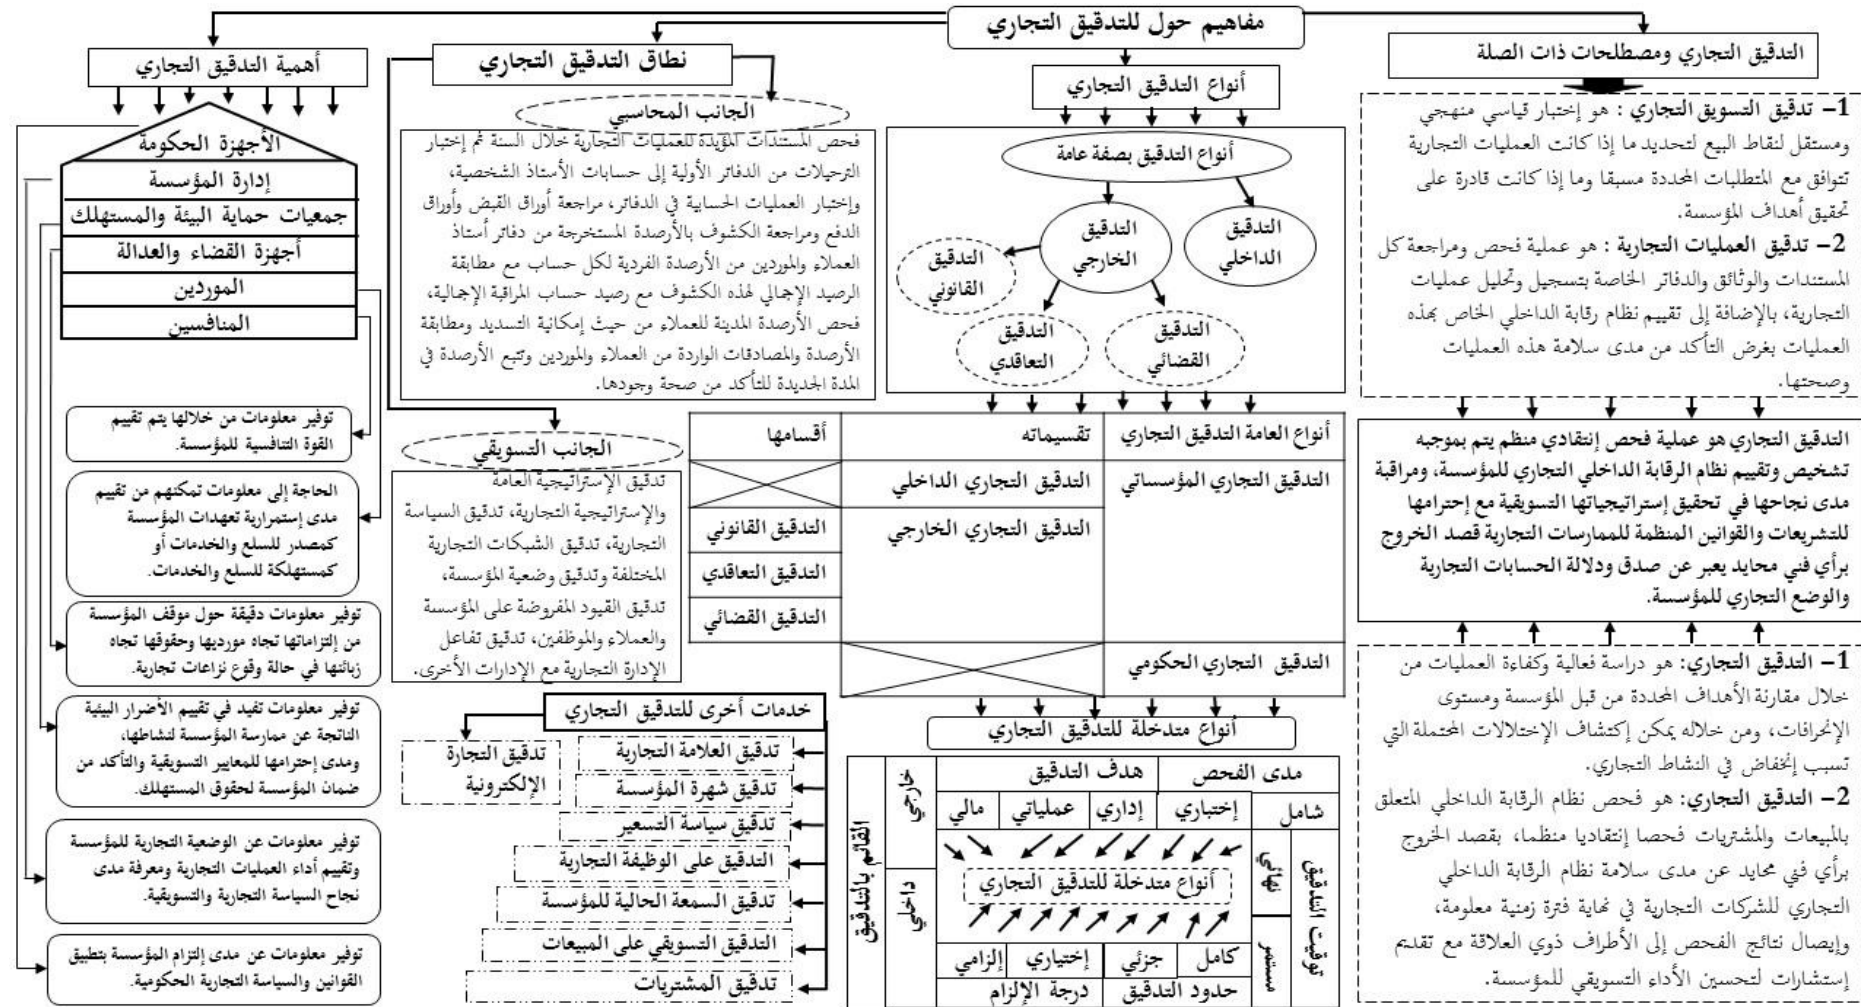 مفاهيم حول للتدقيق التجاري
التدقيق التجاري ومصطلحات ذات الصلة
1– تدقيق التسويق التجاري : هو إختبار قياسي منهجي
ومستقل لنقاط البيع لتحديد ما إذا كانت العمليات التجارية
تتوافق مع المتطلبات المحددة مسبقا وما إذا كانت قادرة على
تحقيق أهداف المؤسسة.
2– تدقيق العمليات التجارية : هو عملية فحص ومراجعة كل
المستندات والوثائق والدفاتر الخاصة بتسجيل وتحليل عمليات
التجارية، بالإضافة إلى تقييم نظام رقابة الداخلي الخاص بهذه
العمليات بغرض التأكد من مدى سلامة هذه العمليات
وصحتها.
التدقيق التجاري هو عملية فحص إنتقادي منظم يتم بموجبه
تشخيص وتقييم نظام الرقابة الداخلي التجاري للمؤسسة، ومراقبة
مدى نجاحها في تحقيق إستراتيجياتها التسويقية مع إحترامها
للتشريعات والقوانين المنظمة للممارسات التجارية قصد الخروج
برأي فني محايد يعبر عن صدق ودلالة الحسابات التجارية
والوضع التجاري للمؤسسة.
1– التدقيق التجاري: هو دراسة فعالية وكفاءة العمليات من
خلال مقارنة الأهداف المحددة من قبل المؤسسة ومستوى
الإنحرافات، ومن خلاله يمكن إكتشاف الإختلالات المحتملة التي
تسبب إنخفاض في النشاط التجاري.
2– التدقيق التجاري: هو فحص نظام الرقابة الداخلي المتعلق
بالمبيعات والمشتريات فحصا إنتقاديا منظما، بقصد الخروج
برأي فني محايد عن مدى سلامة نظام الرقابة الداخلي
التجاري للشركات التجارية في نهاية فترة زمنية معلومة،
وإيصال نتائج الفحص إلى الأطراف ذوي العلاقة مع تقديم
إستشارات لتحسين الأداء التسويقي للمؤسسة.
أنواع التدقيق التجاري
أنواع التدقيق بصفة عامة
التدقيق
الداخلي
التدقيق
الخارجي
التدقيق
القانوني
التدقيق
القضائي
التدقيق
التعاقدي
أنواع العامة التدقيق التجاري تقسيماته أقسامها
التدقيق التجاري المؤسساتي التدقيق التجاري الداخلي
التدقيق التجاري الخارجي التدقيق القانوني
التدقيق التعاقدي
التدقيق القضائي
التدقيق التجاري الحكومي
أنواع متدخلة للتدقيق التجاري
مدى الفحص هدف التدقيق
شامل إختباري إداري عملياتي مالي
خارجي
داخلي
القائم بالتدقيق
أنواع متدخلة للتدقيق التجاري
نهائي
مستمر
توقيت التدقيق
كامل جزئي إختياري إلزامي
حدود التدقيق درجة الإلزام
نطاق التدقيق التجاري
الجانب المحاسبي
فحص المستندات المؤيدة للعمليات التجارية خلال السنة ثم إختبار
الترحيلات من الدفاتر الأولية إلى حسابات الأستاذ الشخصية،
وإختبار العمليات الحسابية في الدفاتر، مراجعة أوراق القبض وأوراق
الدفع ومراجعة الكشوف بالأرصدة المستخرجة من دفاتر أستاذ
العملاء والموردين من الأرصدة الفردية لكل حساب مع مطابقة
الرصيد الإجمالي لهذه الكشوف مع رصيد حساب المراقبة الإجمالية،
فحص الأرصدة المدينة للعملاء من حيث إمكانية التسديد ومطابقة
الأرصدة والمصادقات الواردة من العملاء والموردين وتتبع الأرصدة في
المدة الجديدة للتأكد من صحة وجودها.
الجانب التسويقي
تدقيق الإستراتيجية العامة
والإستراتيجية التجارية، تدقيق السياسة
التجارية، تدقيق الشبكات التجارية
المختلفة وتدقيق وضعية المؤسسة،
تدقيق القيود المفروضة على المؤسسة
والعملاء والموظفين، تدقيق تفاعل
الإدارة التجارية مع الإدارات الأخرى.
خدمات أخرى للتدقيق التجاري
تدقيق العلامة التجارية
تدقيق شهرة المؤسسة
تدقيق سياسة التسعير
التدقيق على الوظيفة التجارية
تدقيق السمعة الحالية للمؤسسة
التدقيق التسويقي على المبيعات
تدقيق المشتريات
تدقيق التجارة
الإلكترونية
أهمية التدقيق التجاري
الأجهزة الحكومة
إدارة المؤسسة
جمعيات حماية البيئة والمستهلك
أجهزة القضاء والعدالة
الموردين
المنافسين
توفير معلومات من خلالها يتم تقييم
القوة التنافسية للمؤسسة.
الحاجة إلى معلومات تمكنهم من تقييم
مدى إستمرارية تعهدات المؤسسة
كمصدر للسلع والخدمات أو
كمستهلكة للسلع والخدمات.
توفير معلومات دقيقة حول موقف المؤسسة
من إلتزاماتها تجاه مورديها وحقوقها تجاه
زبائنها في حالة وقوع نزاعات تجارية.
توفير معلومات تفيد في تقييم الأضرار البيئية
الناتجة عن ممارسة المؤسسة لنشاطها،
ومدى إحترامها للمعايير التسويقية والتأكد من
ضمان المؤسسة لحقوق المستهلك.
توفير معلومات عن الوضعية التجارية للمؤسسة
وتقييم أداء العمليات التجارية ومعرفة مدى
نجاح السياسة التجارية والتسويقية.
توفير معلومات عن مدى إلتزام المؤسسة بتطبيق
القوانين والسياسة التجارية الحكومية.